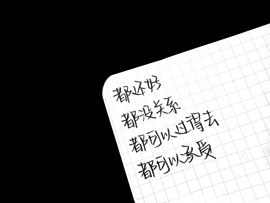 都还好
都没关系
都可以过得去
都可以承受